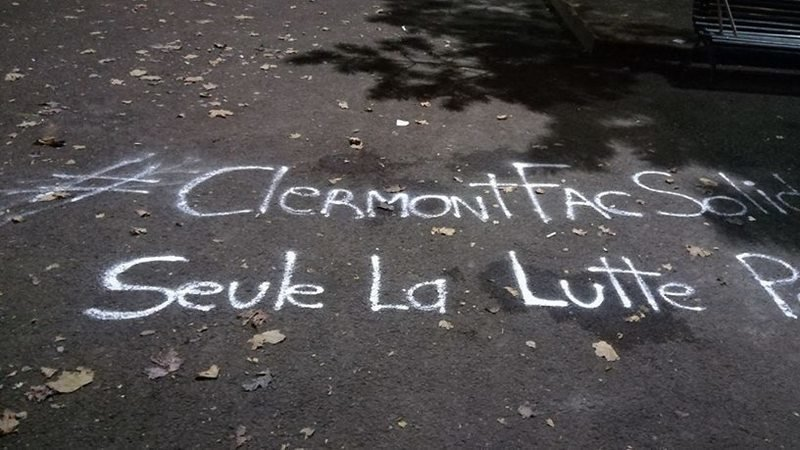 #ClermontFacSolid
Seule La Lutte